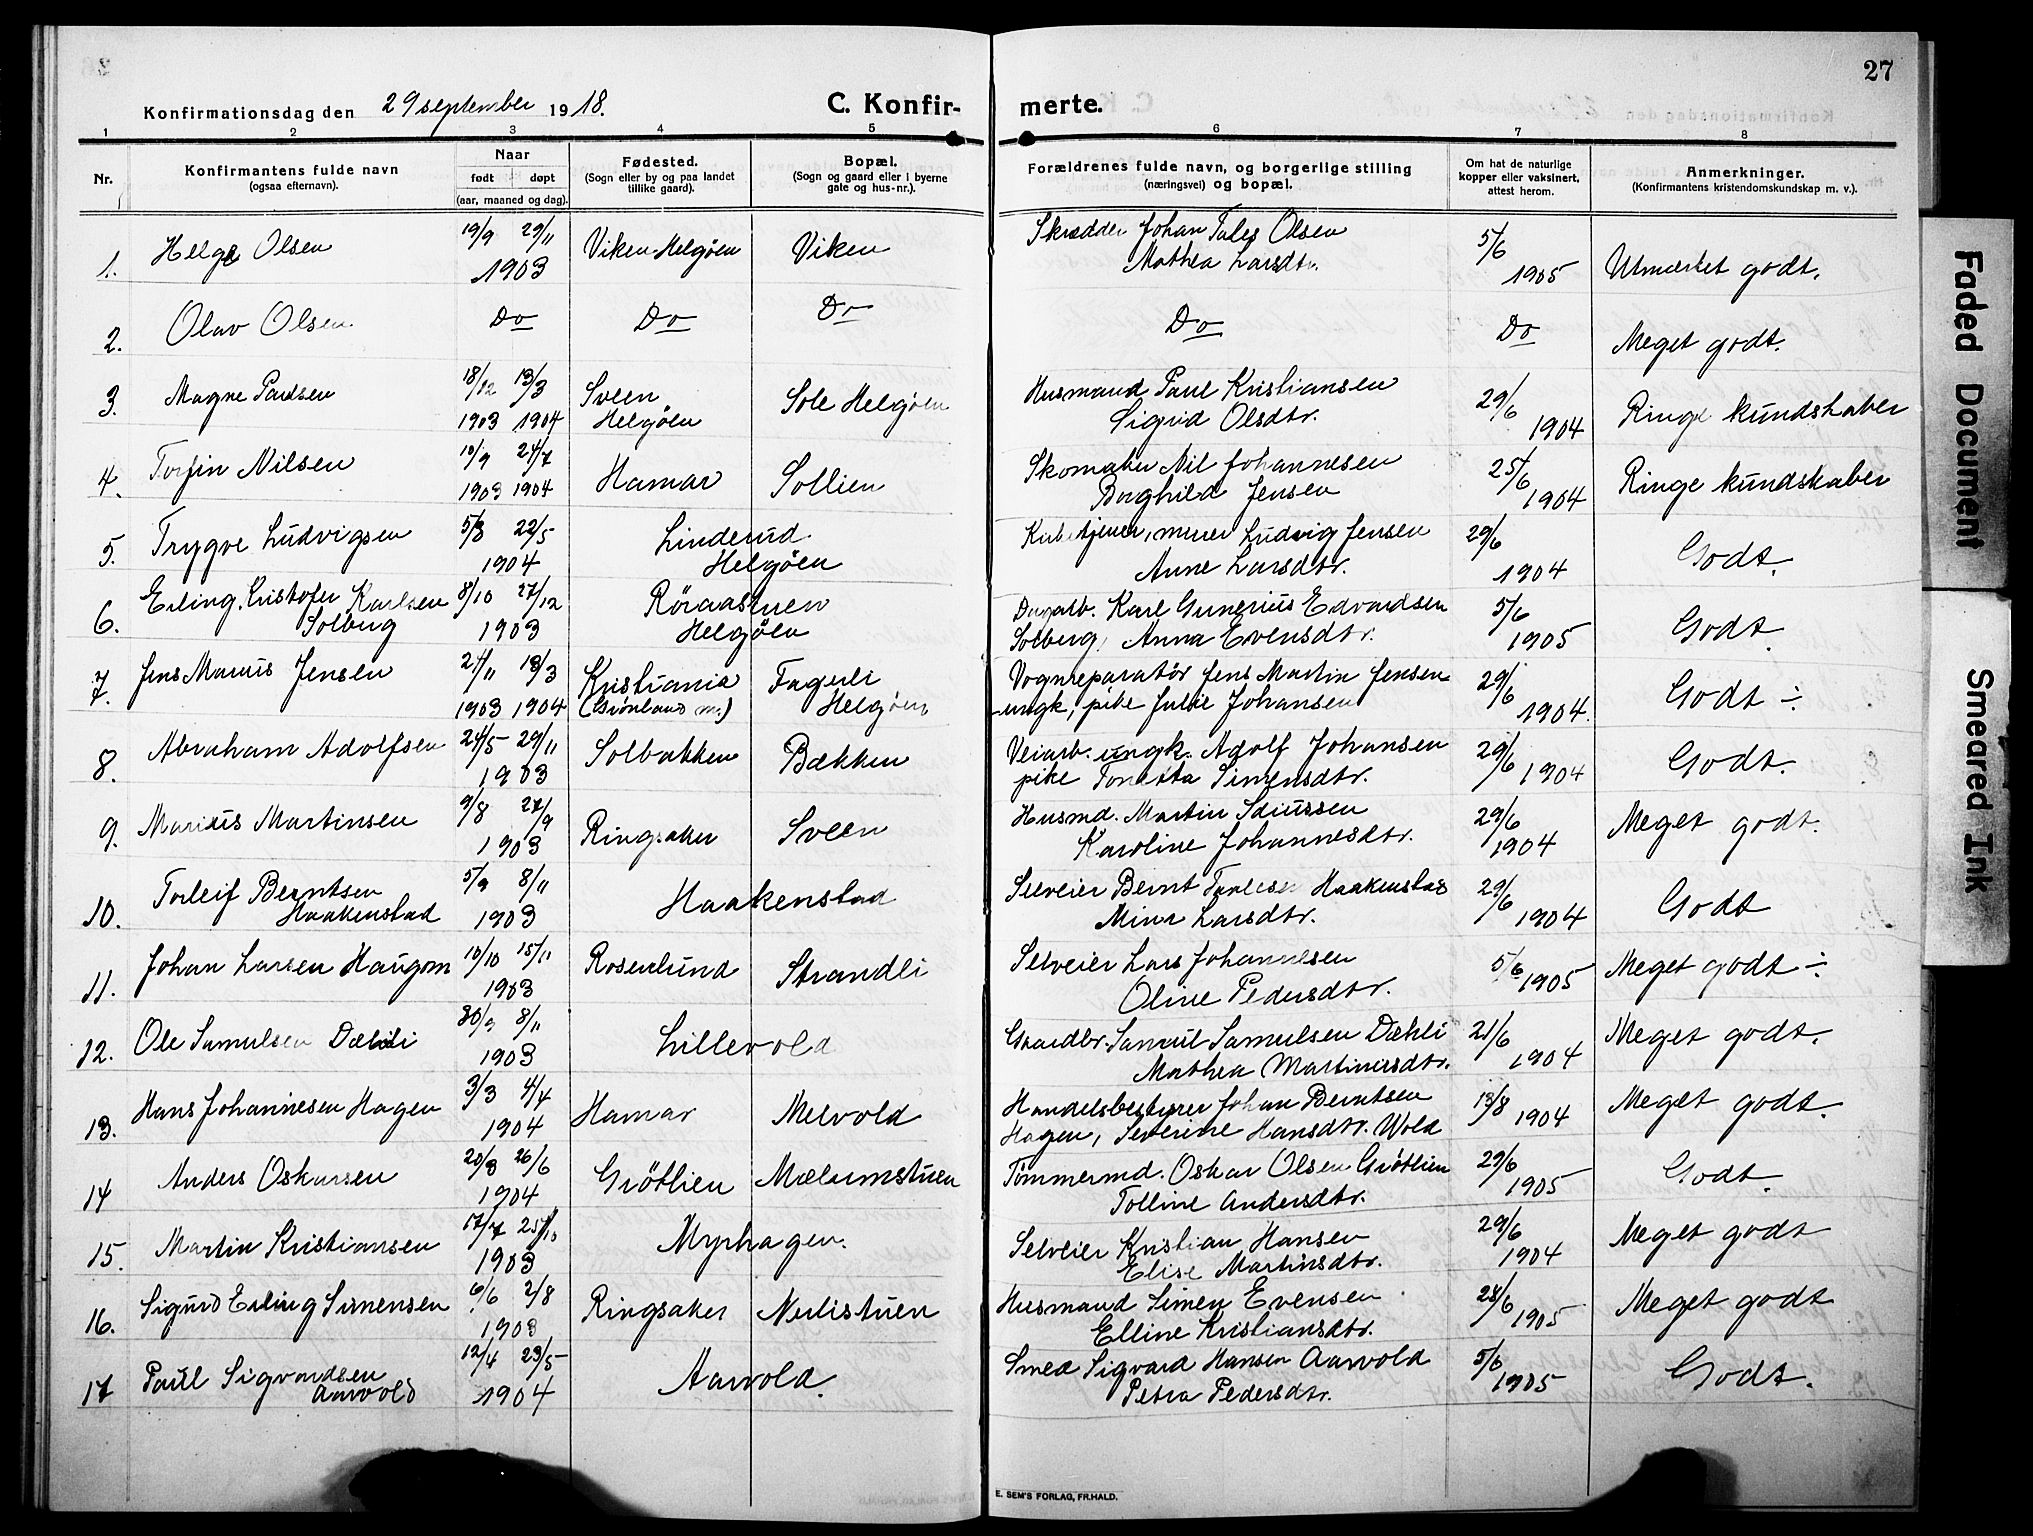 27
Konfirmationsdag den 29 september 1918.
C. Konfir-
merte.
1 2 3 4 5 6 7 8
Nr.
Konfirmantens fulde navn
(ogsaa efternavn).
Naar
født døpt
(aar, maaned og dag).
Fødested.
(Sogn eller by og paa landet
tillike gaard).
Bopæl.
(Sogn og gaard eller i byerne
gate og hus-nr.).
Forældrenes fulde navn, og borgerlige stilling
(næringsvei) og bopæl.
Om hat de naturlige
kopper eller vaksinert,
attest herom.
Anmerkninger.
(Konfirmantens kristendomskundskap m. v.).
1. Helge Olsen 19/9 29/11 Viken-Helgöen Viken Skrædder Johan Olsen 5/6
1903 Mathea Larsdtr. 1905 Utmerket godt.
2. Olav Olsen Do Do Do Do Do Meget godt.
3. Magne Paulsen 18/12 13/3 Sveen Sole Helgöen Husmand Paul Kristiansen 29/6
1903 1904 Helgöen Sigrid Olsdtr. 1904 Ringe kundskaber
4. Torfin Nilsen 10/9 24/7 Hamar Sollien Skomaker Nil Johannesen 25/6
1903 1904 Borghild Jensen 1904 Ringe kundskaber
5. Trygve Ludvigsen 5/3 22/5 Linderud Kirketjener, murer Ludvig Jensen 29/6
1904 Helgöen Anne Larsdtr. 1904 Godt.
6. Erling Kristofer Karlsen 8/10 27/12 Röraastuen Dagarb. Karl Gunerius Edvardsen 5/6
Solberg 1903 Helgöen Solberg, Anna Evensdtr. 1905 Godt.
7. Jens Marius Jensen 24/11 13/3 Kristiania Fagerli Vognreparatör Jens Martin Jensen 29/6
1903 1904 (Grönland m.) Helgöen ungk, pike Julie Johansen 1904. Godt ÷
8. Abraham Adolfsen 24/5 29/11 Solbakken Bækken Veiarb. ungk. Adolf Johansen 29/6
1903 pike Tonetta Simensdtr. 1904 Godt.
9. Marius Martinsen 9/8 27/9 Ringsaker Sveen Husmd. Martin 29/6
1903 Karoline Johannesdtr. 1904 Meget godt.
10. Torleif Berntsen 5/9 8/11 Haakenstad Selveier Bernt Haakenstad 29/6
Haakenstad 1903 Mina Larsdtr. 1904 Godt
11. Johan Larsen Haugom 10/10 15/11 Rosenlund Strandli Selveier Lars Johannesen 5/6
1903 Oline Pedersdtr. 1905 Meget godt ÷
12. Ole Samulsen Dæhli 30/9 8/11 Lillevold Gaardbr. Samul Samulsen Dæhli 21/6
1903 Mathea Martinusdtr. 1904 Meget godt.
13. Hans Johannesen Hagen 3/3 4/4 Hamar Melvold Handelsbestyrer Johan Berntsen 13/8
1904 Hagen, Severine Hansdtr. Wold 1904 Meget godt.
14 Anders Oskarsen 20/3 26/6 Grötlien Mælumstuen Tömmermd. Oskar Olsen Grötlien 29/6
1904 Tolline Andersdtr. 1905 Godt.
15. Martin Kristiansen 17/7 25/10 Myrhagen. Selveier Kristian Hansen 29/6
1903 Elise Martinsdtr. 1904 Meget godt
16. Sigurd Erling Simensen 6/6 2/8 Ringsaker Nerlistuen Husmand Simen Evensen 28/6
1903 Elline Kristiansdtr. 1905 Meget godt
17 Paul Sigvardsen 12/4 23/5 Aarvold. Smed Sigvard Hansen Aarvold 5/6
Aarvold 1904 Petra Pedersdtr. 1905 Godt.
E. SEM'S FORLAG, FR.HALD.
Faded Document
Smeared Ink